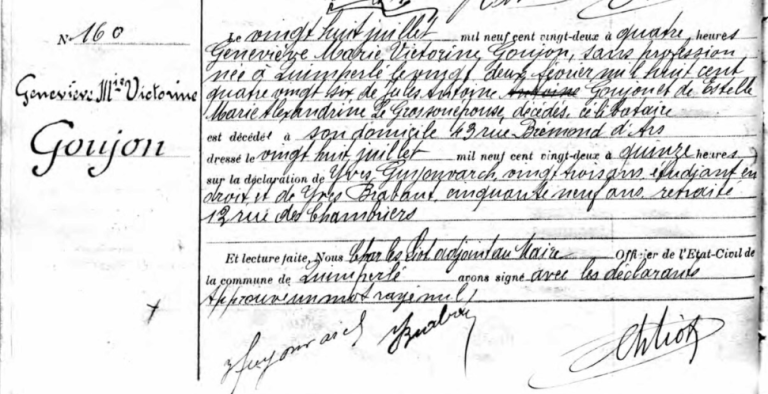 N° 160
Geneviève Mie Victorine
Goujon
Le vingt huit juillet mil neuf cent vingt-deux à quatre heures
Geneviève Marie Victorine Goujon, sans profession
née à Quimperlé le vingt deux février mil huit cent
quatre vingt six de Jules Antoine Antoine Goujon et de Estelle
Marie Alexandrine Le Gros son épouse, décédés, célibataire
est décédée à son domicile 43 rue Brémond d'Ars
dressé le vingt huit juillet mil neuf cent vingt-deux à quinze heures
sur la déclaration de Yves Guyonvarch, vingt trois ans, étudiant en
droit, et de Yves Brabant, cinquante neuf ans, retraité
12 rue des
Et lecture faite, Nous Charles adjoint au Maire Officier de l'Etat-Civil de
la commune de Quimperlé avons signé avec les déclarants
Approuvé un mot rayé nul